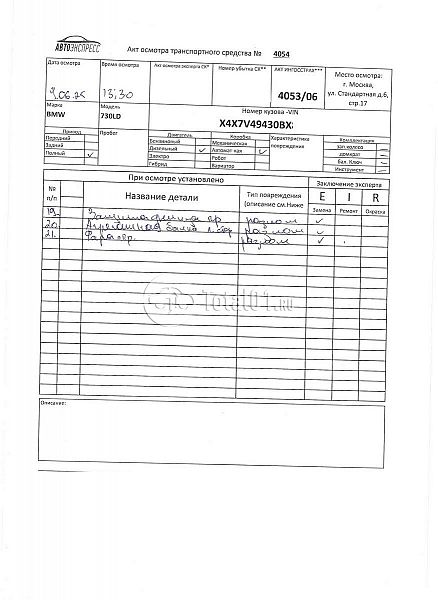 АВТОЭКСПРЕСС
Акт осмотра транспортного средства № 4054
Дата осмотра
Время осмотра
Акт осмотра эксперта СК*
Номер убытка СК**
АКТ ИНГОССТРАХ***
Место осмотра:
г. Москва,
ул. Стандартная д.6,
стр.17
13:30
4053/06
Марка
Модель
Номер кузова -VIN
BMW
730LD
X4X7V49430BX
Привод
Пробег
Двигатель
Коробка
Характеристика
повреждения
Комплектация
Передний
Бензиновый
Механическая
зап.колесо
Задний
Дизельный
Автомат-кая
домкрат
Полный
Электро
Робот
Бал. Ключ
Гибрид
Вариатор
Инструмент
При осмотре установлено
Заключение эксперта
№
п/п
Название детали
Тип повреждения
(описание см.Ниже
E I R
Замена Ремонт Окраска
19. разлом
20. разлом
21. Фара пр. разлом
Total01.ru
Описание: